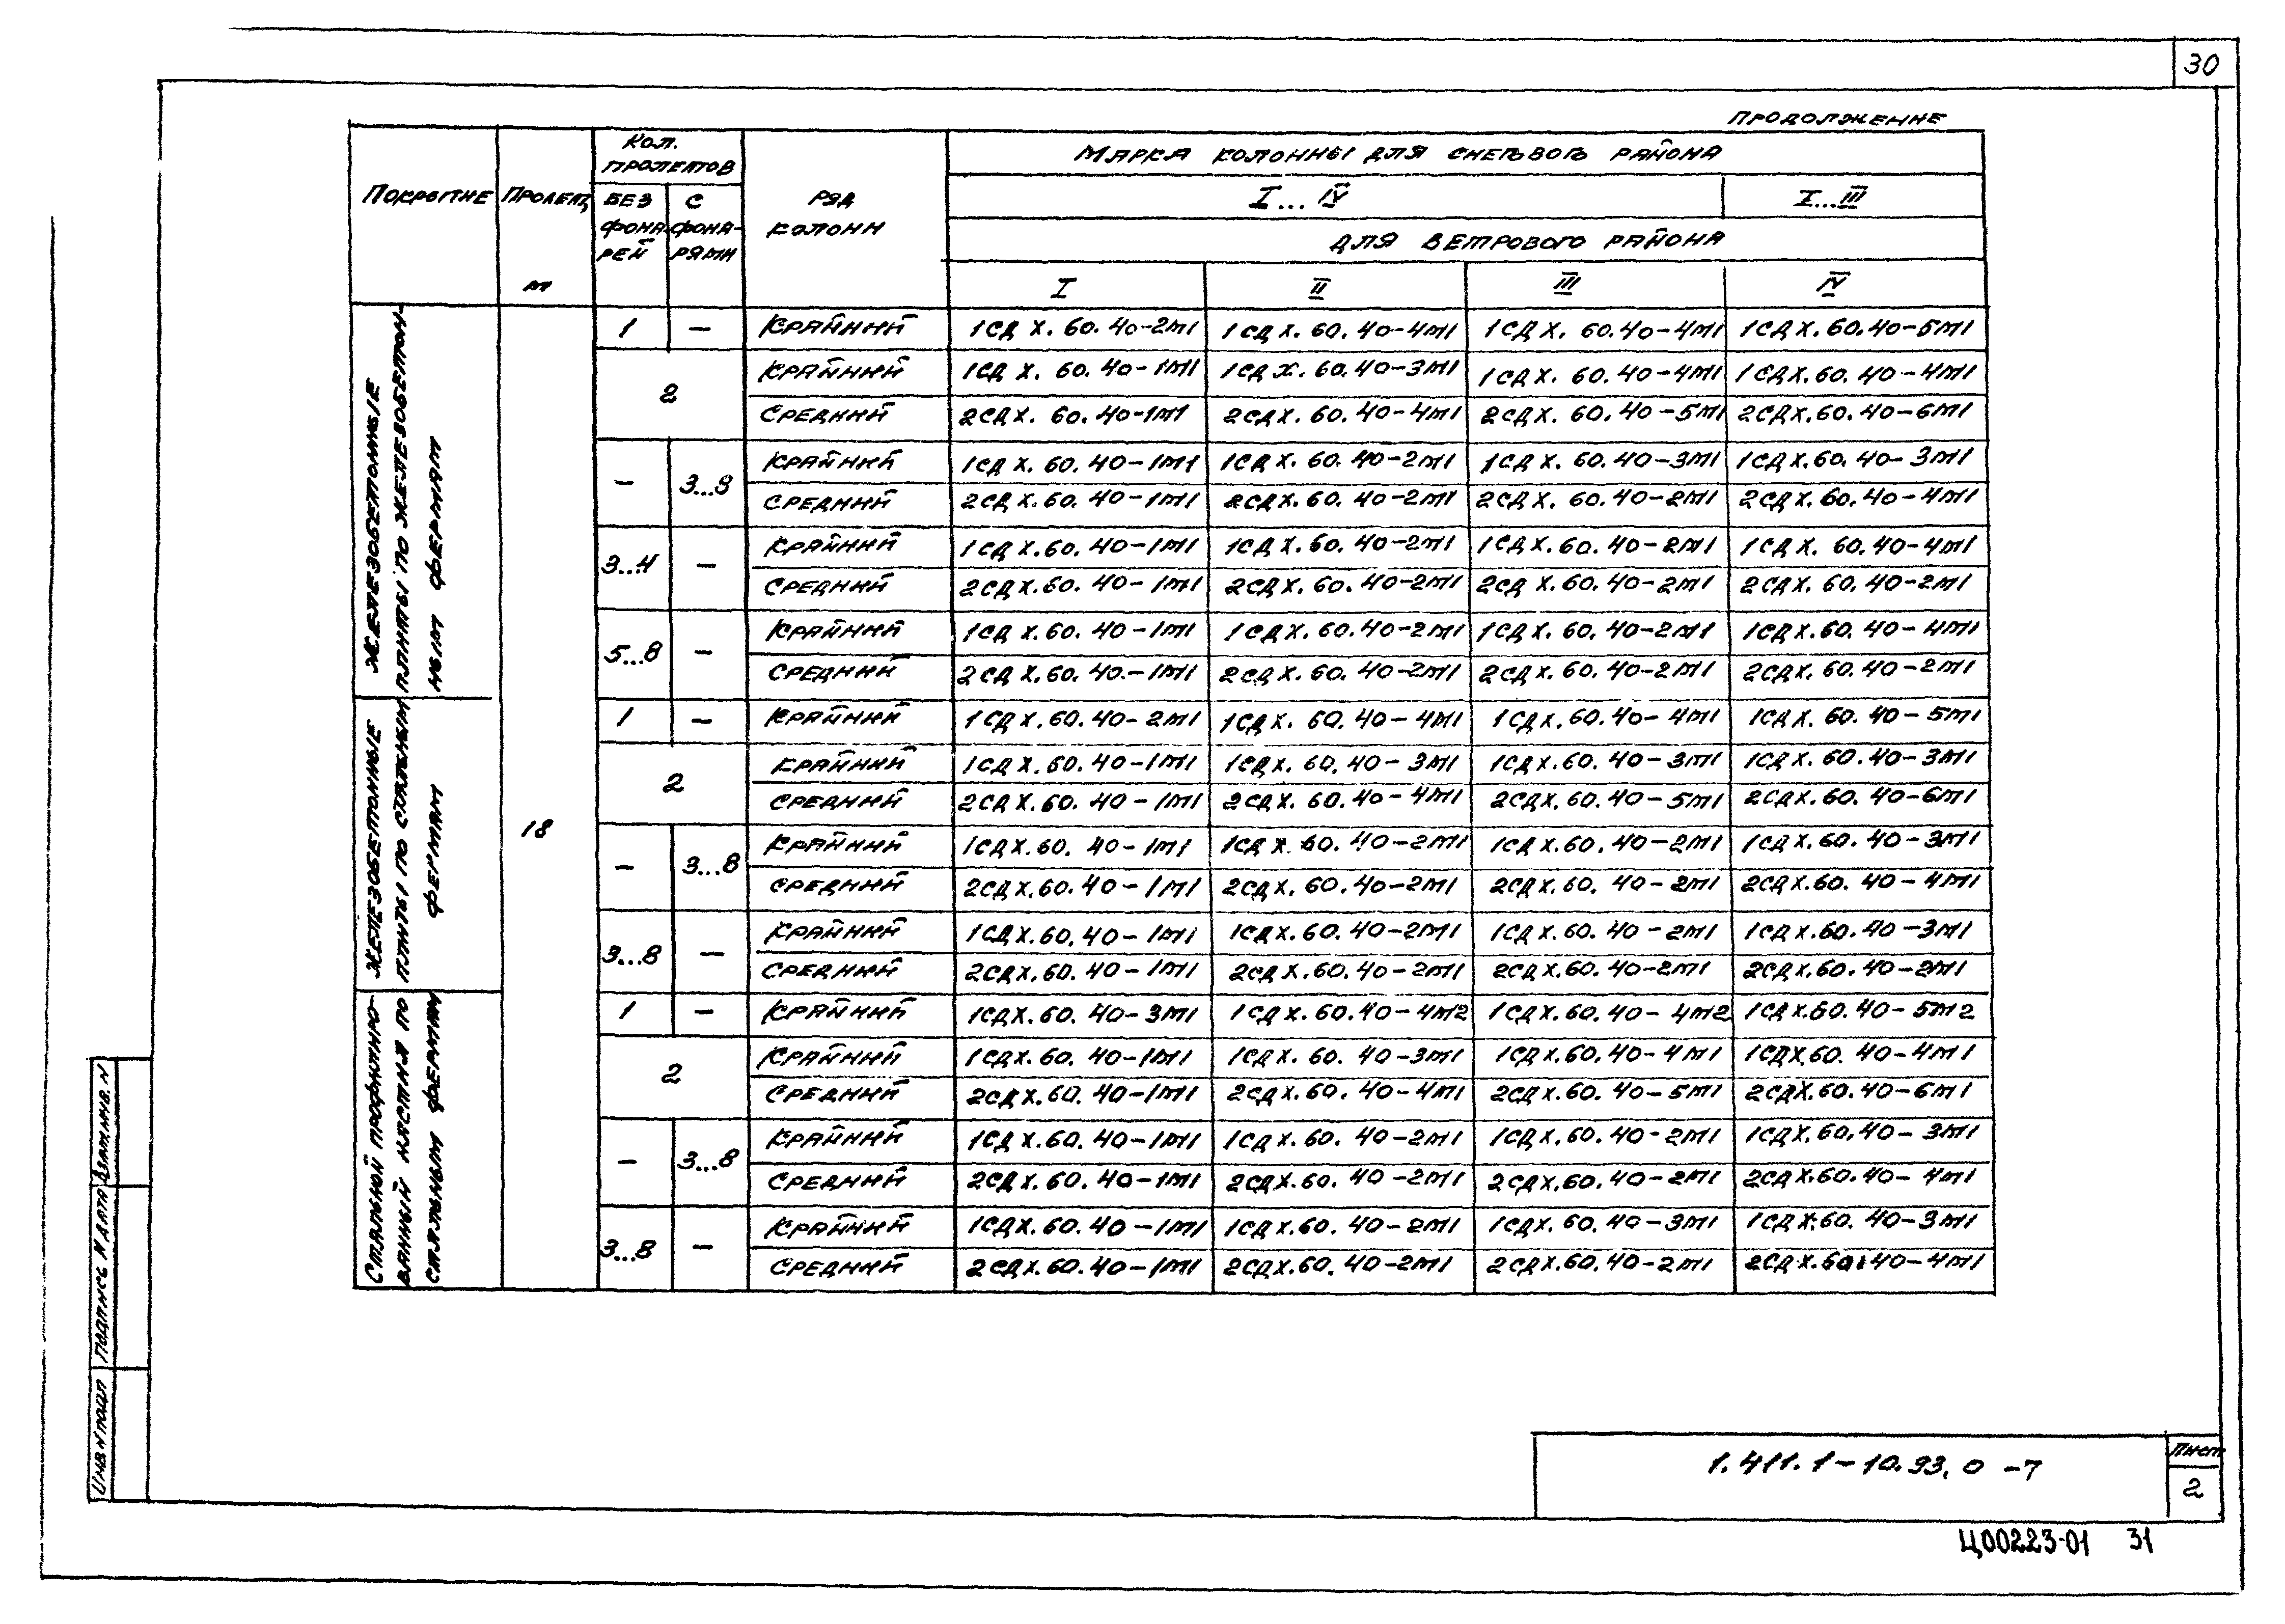 30
ПРОДОЛЖЕНИЕ
ПОКРЫТИЕ
ПРОЛЕТ, М
КОЛ. ПРОЛЕТОВ
БЕЗ ФОНАРЕЙ
С ФОНАРЯМИ
РЯД КОЛОНН
МАРКА КОЛОННЫ ДЛЯ СНЕГОВОГО РАЙОНА
I...IV
I...III
ДЛЯ ВЕТРОВОГО РАЙОНА
I II III IV
ЖЕЛЕЗОБЕТОННЫЕ
ПЛИТЫ ПО ЖЕЛЕЗОБЕТОН-
НЫМ ФЕРМАМ
18
1 — КРАЙНИЙ 1СДХ.60.40-2М1 1СДХ.60.40-4М1 1СДХ.60.40-4М1 1СДХ.60.40-5М1
2 КРАЙНИЙ 1СДХ.60.40-1М1 1СДХ.60.40-3М1 1СДХ.60.40-4М1 1СДХ.60.40-4М1
СРЕДНИЙ 2СДХ.60.40-1М1 2СДХ.60.40-4М1 2СДХ.60.40-5М1 2СДХ.60.40-6М1
— 3...8 КРАЙНИЙ 1СДХ.60.40-1М1 1СДХ.60.40-2М1 1СДХ.60.40-3М1 1СДХ.60.40-3М1
СРЕДНИЙ 2СДХ.60.40-1М1 2СДХ.60.40-2М1 2СДХ.60.40-2М1 2СДХ.60.40-4М1
3...4 — КРАЙНИЙ 1СДХ.60.40-1М1 1СДХ.60.40-2М1 1СДХ.60.40-2М1 1СДХ.60.40-4М1
СРЕДНИЙ 2СДХ.60.40-1М1 2СДХ.60.40-2М1 2СДХ.60.40-2М1 2СДХ.60.40-2М1
5...8 — КРАЙНИЙ 1СДХ.60.40-1М1 1СДХ.60.40-2М1 1СДХ.60.40-2М1 1СДХ.60.40-4М1
СРЕДНИЙ 2СДХ.60.40-1М1 2СДХ.60.40-2М1 2СДХ.60.40-2М1 2СДХ.60.40-2М1
ЖЕЛЕЗОБЕТОННЫЕ
ПЛИТЫ ПО СТАЛЬНЫМ
ФЕРМАМ
1 — КРАЙНИЙ 1СДХ.60.40-2М1 1СДХ.60.40-4М1 1СДХ.60.40-4М1 1СДХ.60.40-5М1
2 КРАЙНИЙ 1СДХ.60.40-1М1 1СДХ.60.40-3М1 1СДХ.60.40-3М1 1СДХ.60.40-3М1
СРЕДНИЙ 2СДХ.60.40-1М1 2СДХ.60.40-4М1 2СДХ.60.40-5М1 2СДХ.60.40-6М1
— 3...8 КРАЙНИЙ 1СДХ.60.40-1М1 1СДХ.60.40-2М1 1СДХ.60.40-2М1 1СДХ.60.40-3М1
СРЕДНИЙ 2СДХ.60.40-1М1 2СДХ.60.40-2М1 2СДХ.60.40-2М1 2СДХ.60.40-4М1
3...8 — КРАЙНИЙ 1СДХ.60.40-1М1 1СДХ.60.40-2М1 1СДХ.60.40-2М1 1СДХ.60.40-3М1
СРЕДНИЙ 2СДХ.60.40-1М1 2СДХ.60.40-2М1 2СДХ.60.40-2М1 2СДХ.60.40-2М1
СТАЛЬНОЙ ПРОФИЛИРО-
ВАННЫЙ НАСТИЛ ПО
СТАЛЬНЫМ ФЕРМАМ
1 — КРАЙНИЙ 1СДХ.60.40-3М1 1СДХ.60.40-4М2 1СДХ.60.40-4М2 1СДХ.60.40-5М2
2 КРАЙНИЙ 1СДХ.60.40-1М1 1СДХ.60.40-3М1 1СДХ.60.40-4М1 1СДХ.60.40-4М1
СРЕДНИЙ 2СДХ.60.40-1М1 2СДХ.60.40-4М1 2СДХ.60.40-5М1 2СДХ.60.40-6М1
— 3...8 КРАЙНИЙ 1СДХ.60.40-1М1 1СДХ.60.40-2М1 1СДХ.60.40-2М1 1СДХ.60.40-3М1
СРЕДНИЙ 2СДХ.60.40-1М1 2СДХ.60.40-2М1 2СДХ.60.40-2М1 2СДХ.60.40-4М1
3...8 — КРАЙНИЙ 1СДХ.60.40-1М1 1СДХ.60.40-2М1 1СДХ.60.40-3М1 1СДХ.60.40-3М1
СРЕДНИЙ 2СДХ.60.40-1М1 2СДХ.60.40-2М1 2СДХ.60.40-2М1 2СДХ.60.40-4М1
ИНВ N ПОДЛ
ПОДПИСЬ И ДАТА
ВЗАМ.ИНВ. N
1.411.1-10.93.0-7
Лист
2
Ц00223-01 31